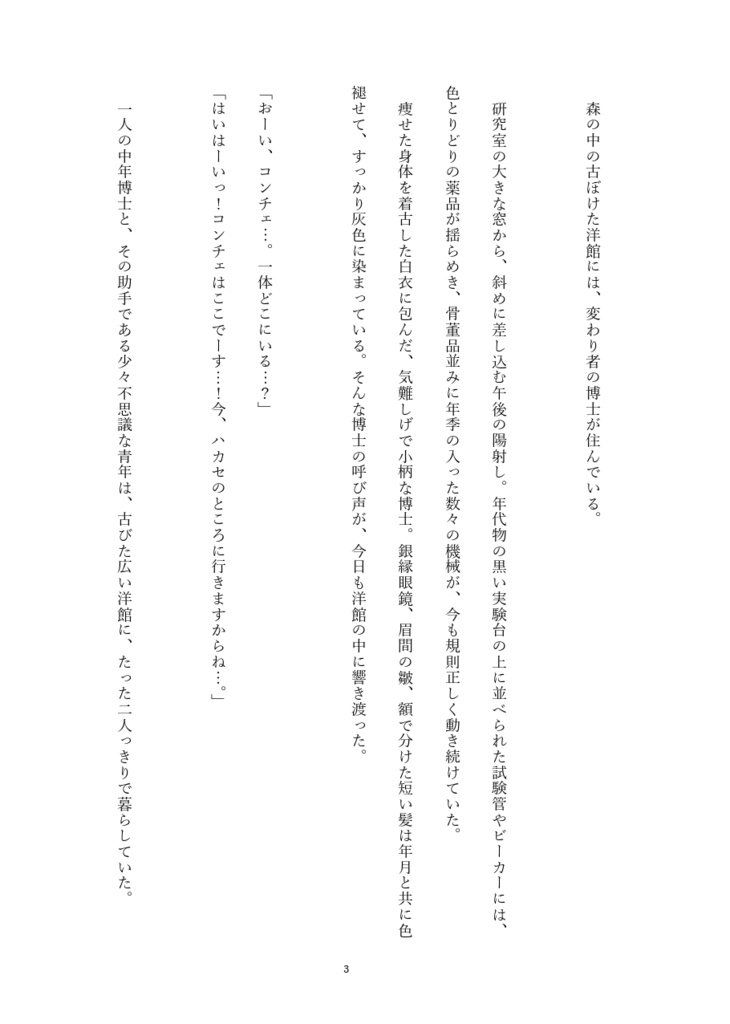 森の中の古ぼけた洋館には、変わり者の博士が住んでいる。
研究室の大きな窓から、斜めに差し込む午後の陽射し。年代物の黒い実験台の上に並べられた試験管やビーカーには、
色とりどりの薬品が揺らめき、骨董品並みに年季の入った数々の機械が、今も規則正しく動き続けていた。
痩せた身体を着古した白衣に包んだ、気難しげで小柄な博士。銀縁眼鏡、眉間の皺、額で分けた短い髪は年月と共に色
褪せて、すっかり灰色に染まっている。そんな博士の呼び声が、今日も洋館の中に響き渡った。
「おーい、コンチェ…。一体どこにいる…？」
「はいはーいっ！コンチェはここでーす…！今、ハカセのところに行きますからね…。」
一人の中年博士と、その助手である少々不思議な青年は、古びた広い洋館に、たった二人っきりで暮らしていた。
3